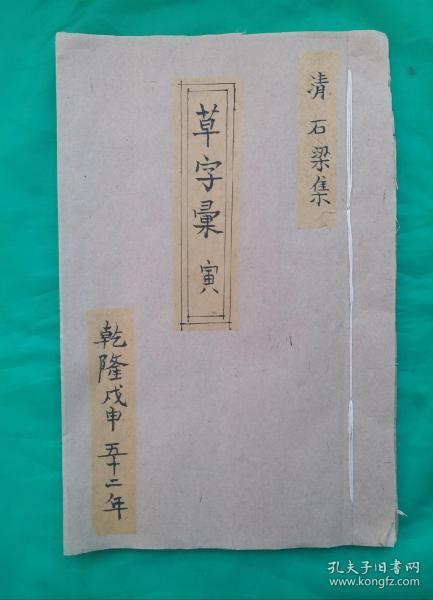 清 石梁集
草字彙 寅
乾隆戊申 五十二年
孔夫子旧书网
www.kongfz.com